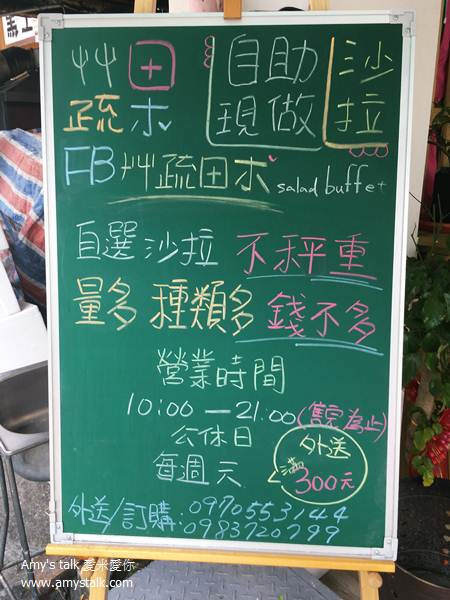 艸田 自助 沙
疏木 現做 拉
FB艸疏田木 salad buffet
自選沙拉 不秤重
量多 種類多 錢不多
營業時間
10:00 — 21:00 (售完為止)
公休日
每週天
外送
滿300元
外送/訂購: 0970553144
0983720799
Amy's talk 愛米愛你
www.amystalk.com